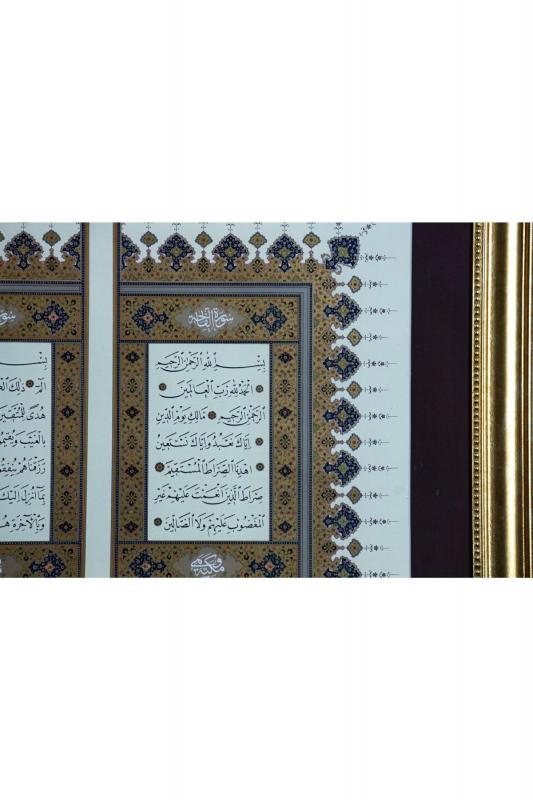 سورة الفاتحة
بسم الله الرحمن الرحيم
الحمد لله رب العالمين
الرحمن الرحيم مالك يوم الدين
اياك نعبد واياك نستعين
اهدنا الصراط المستقيم
صراط الذين انعمت عليهم غير
المغضوب عليهم ولا الضالين
سورة
بسم
الم ذلك
هدى للمتقين
بالغيب ويقيمو
رزقناهم ينفقو
بما انزل اليك
وبالآخرة هـ